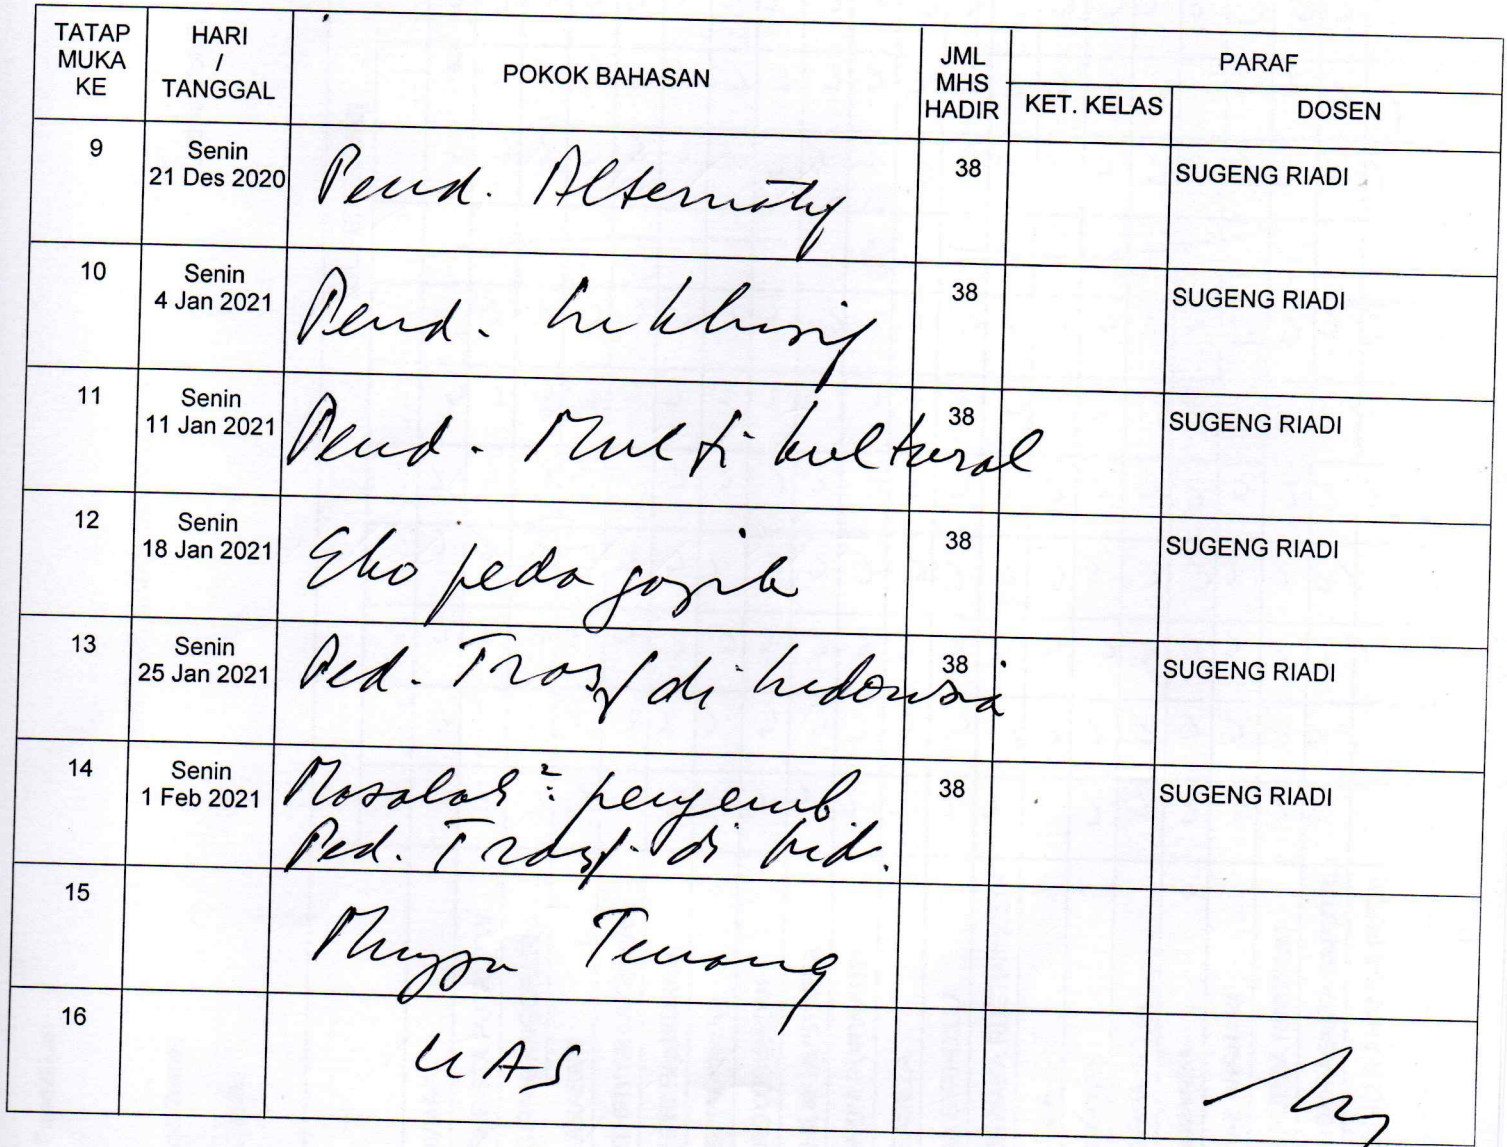 TATAP MUKA KE
HARI / TANGGAL
POKOK BAHASAN
JML MHS HADIR
PARAF
KET. KELAS
DOSEN
9
Senin
21 Des 2020
Pend. Alternatif
38
SUGENG RIADI
10
Senin
4 Jan 2021
Pend. Inklusif
38
SUGENG RIADI
11
Senin
11 Jan 2021
Pend. Multi kultural
38
SUGENG RIADI
12
Senin
18 Jan 2021
Eko pedagogik
38
SUGENG RIADI
13
Senin
25 Jan 2021
Ped. Transf di Indonesia
38
SUGENG RIADI
14
Senin
1 Feb 2021
Masalah² pengemb.
Ped. Transf. di Ind.
38
SUGENG RIADI
15
Minggu Tenang
16
UAS